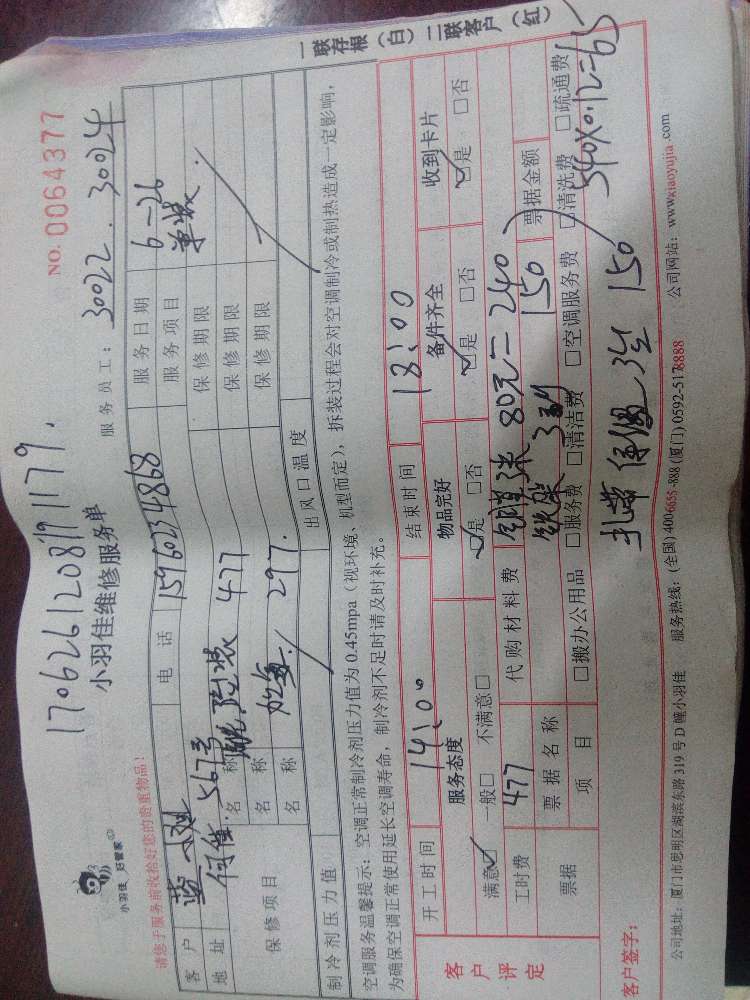 一联存根（白）二联客户（红）
17062612081911179.
NO. 0064377
小羽佳 好管家
小羽佳维修服务单
服务员工： 30022. 30024
请您于服务前收拾好您的贵重物品！
客户 蓝小姐 电话 15960234868 服务日期 6-26
地址 567号 服务项目 单装
保修项目 名称 477 保修期限
名称 加氟 297. 保修期限
名称 保修期限
制冷剂压力值 出风口温度
空调服务温馨提示：空调正常制冷剂压力值为 0.45mpa（视环境、机型而定），拆装过程会对空调制冷或制热造成一定影响，
为确保空调正常使用延长空调寿命，制冷剂不足时请及时补充。
客户评定 开工时间 14:00 结束时间 18:00
服务态度 物品完好 备件齐全 收到卡片
满意☑ 一般□ 不满意□ ☑是 □否 ☑是 □否 ☑是 □否
工时费 477 代购材料费 铜管3米 80元=240
铁架 150
票据 票据名称 票据金额
项目 □搬办公用品 □服务费 □清洁费 □空调服务费 □清洗费 □疏通费
540×0.12=65
150
客户签字：
公司地址：厦门市思明区湖滨东路 319 号 D 幢小羽佳 服务热线：(全国) 400-6655-888 (厦门) 0592-5178888 公司网站：www.xiaoyujia.com